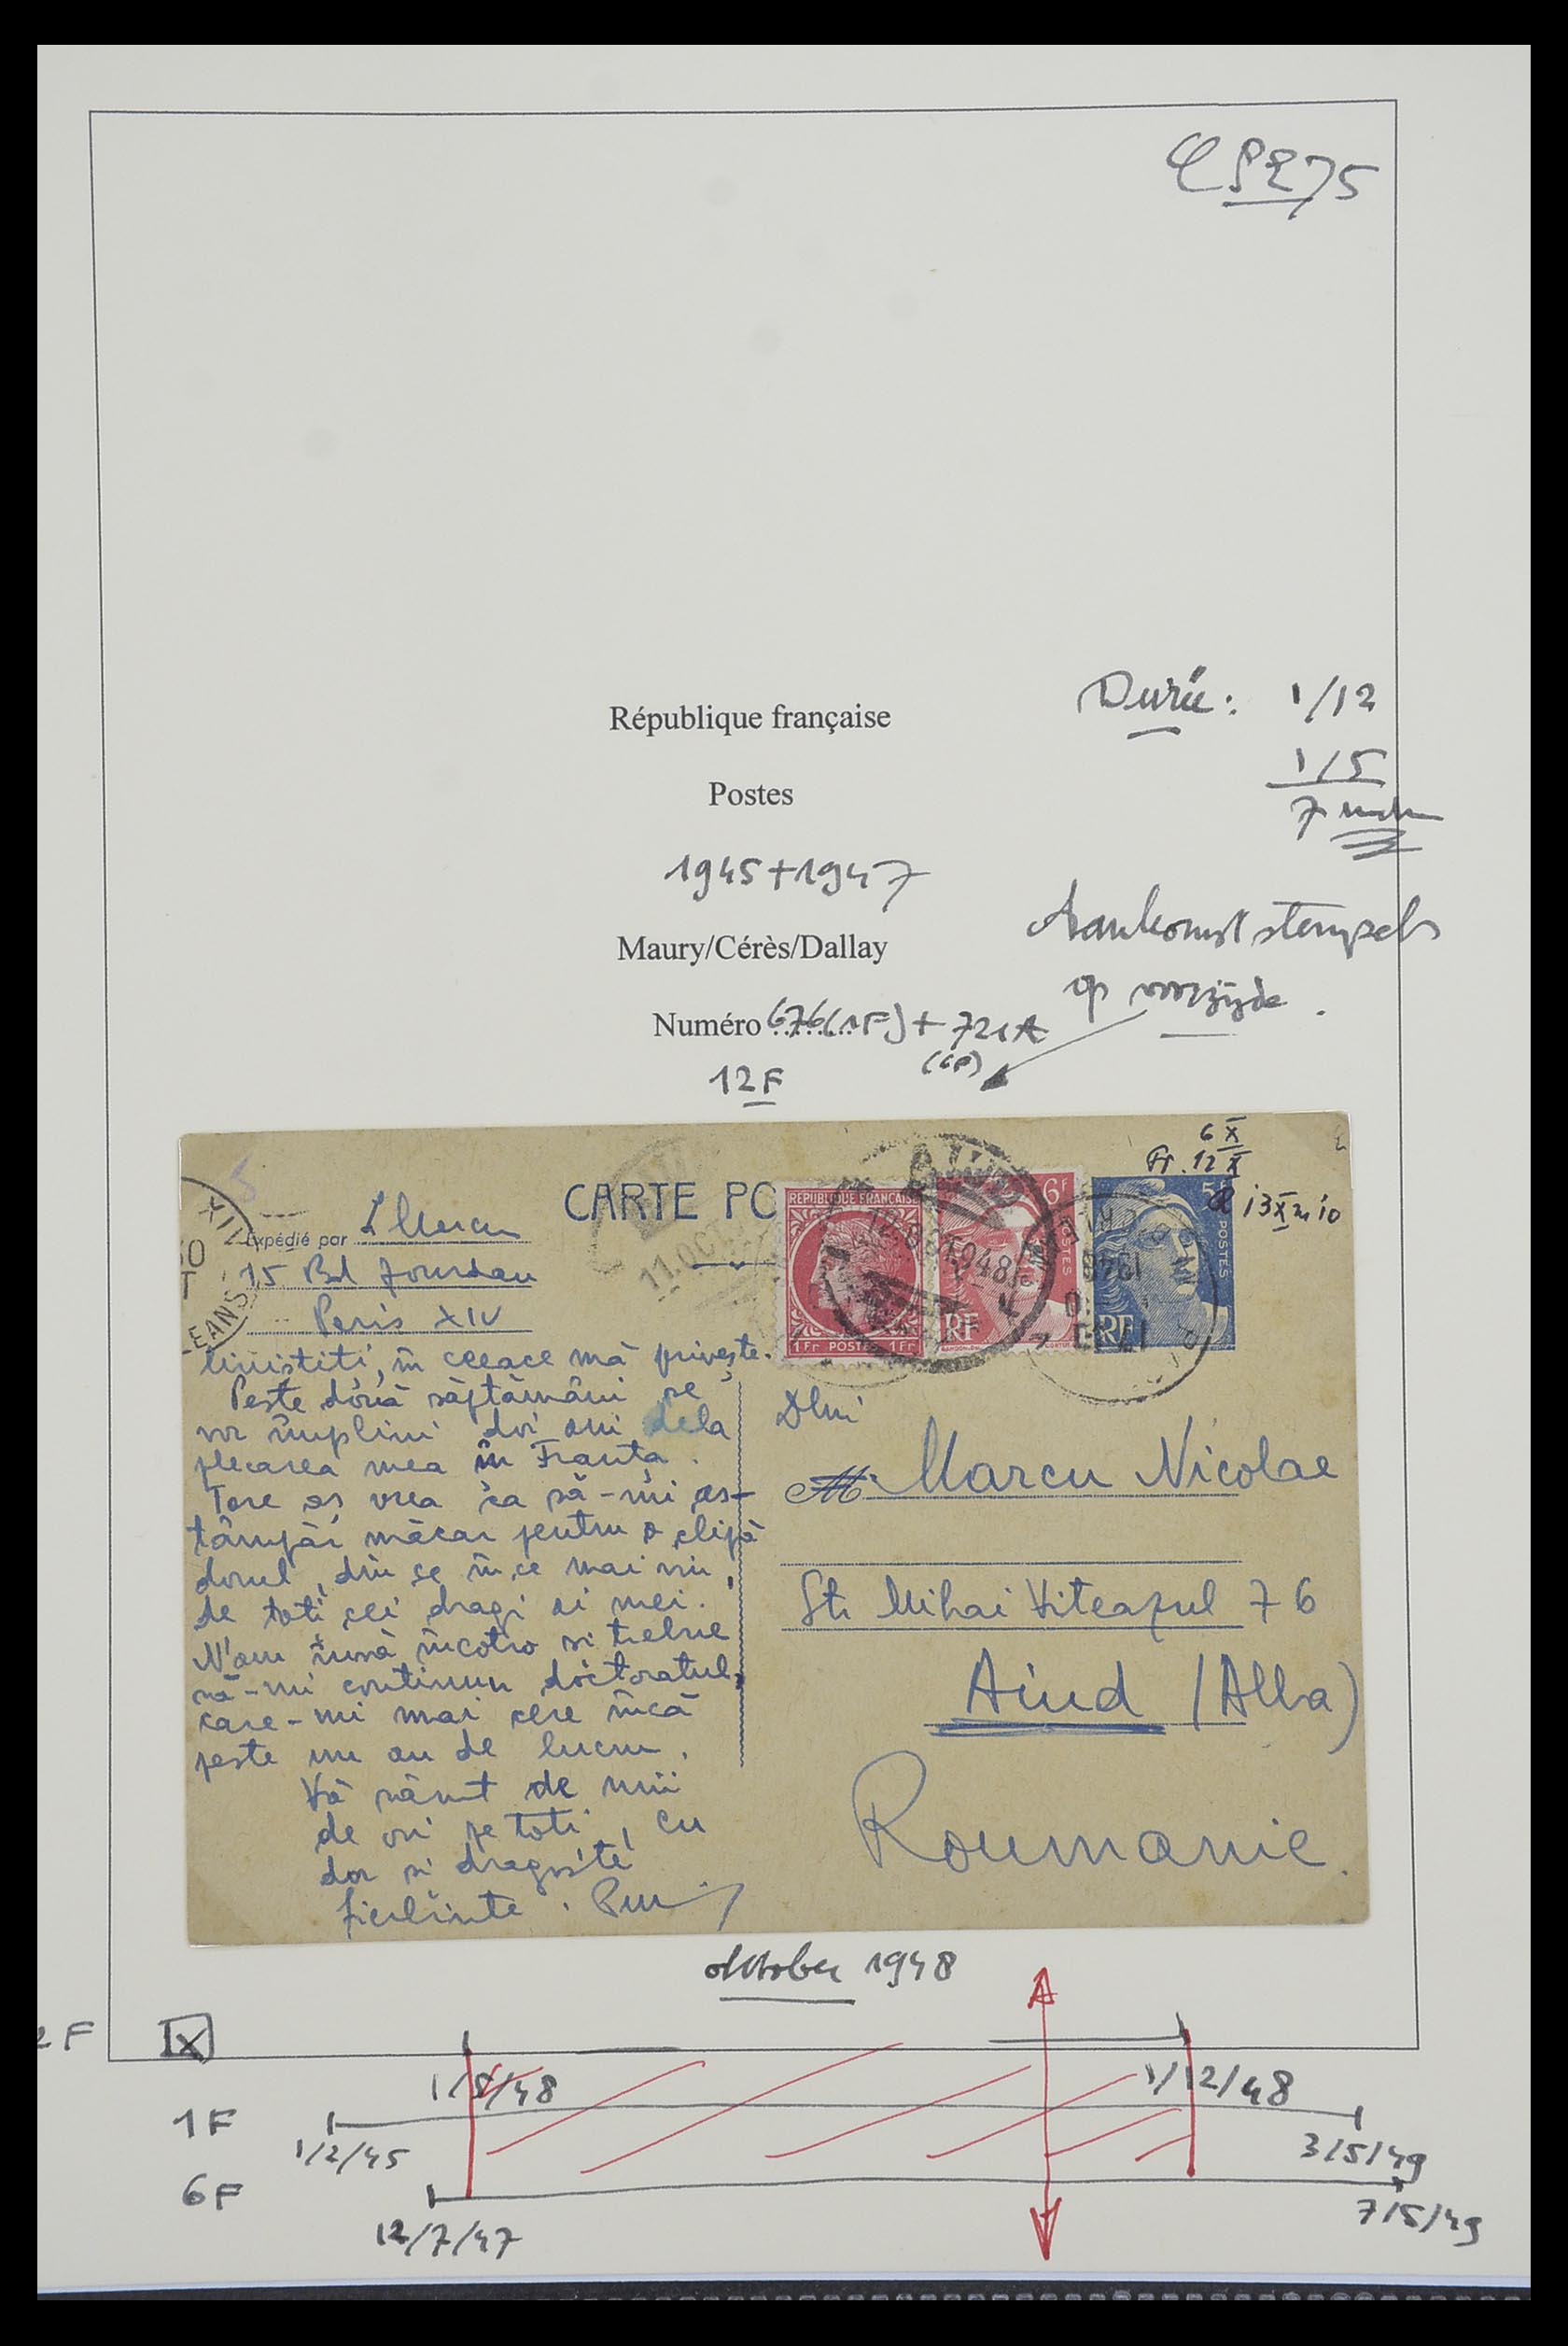 CP 275
Durée: 1/12
1/5
7
République française
Postes
1945+1947
Maury/Cérès/Dallay
Aankomststempels
op voorzijde.
Numéro 676(1F) + 721A
(CP)
12F
6 X
Pr. 12 X
13 X
CARTE PO
Expédié par L Marcu
15 Bd Jourdan
Paris XIV
XIV
EANS
11.OCT
AIUD
1948
RÉPUBLIQUE FRANÇAISE
1Fr POSTES 1Fr
6F
POSTES
RF
5
POSTES
RF
liniștiți, în ceeace mă privește.
Peste două săptămâni se
vor împlini doi ani dela
plecarea mea în Franța.
Tare aș vrea ca să-mi as-
tâmpăr măcar pentru o clipă
dorul, din ce în ce mai viu,
de toți cei dragi ai mei.
N'am însă încotro și trebue
să-mi continuu doctoratul,
care-mi mai cere încă
peste un an de lucru.
Vă sărut de mii
de ori pe toți, cu
dor și dragoste
fierbinte.
Dlui
M. Marcu Nicolae
Str Mihai Viteazul 76
Aiud (Alba)
Roumanie.
oktober 1948
2F
1/5/48
1/12/48
1F
1/2/45
3/5/49
6F
12/7/47
7/5/49